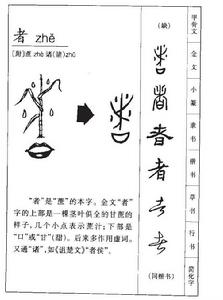 者 zhě
[附]蔗 zhè 诸(諸)zhū
"者"是"蔗"的本字。金文"者"
字的上部是一棵茎叶俱全的甘蔗的
样子,几个小点表示蔗汁;下部是
"口"或"甘"(甜)。后来多作用虚词。
又通"诸",如《诅楚文》"者侯"。
(缺)
者
(同楷书)
甲骨文
金文
小篆
隶书
楷书
草书
行书
简化字